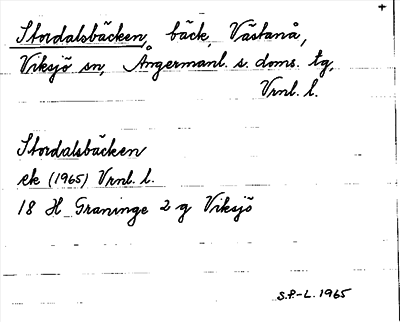 +
Stordalsbäcken, bäck, Västanå,
Viksjö sn, Ångermanl. s. doms. tg,
Vrnl. l.
Stordalsbäcken
ek (1965) Vrnl. l.
18 H Graninge 2 g Viksjö
S.P.-L. 1965